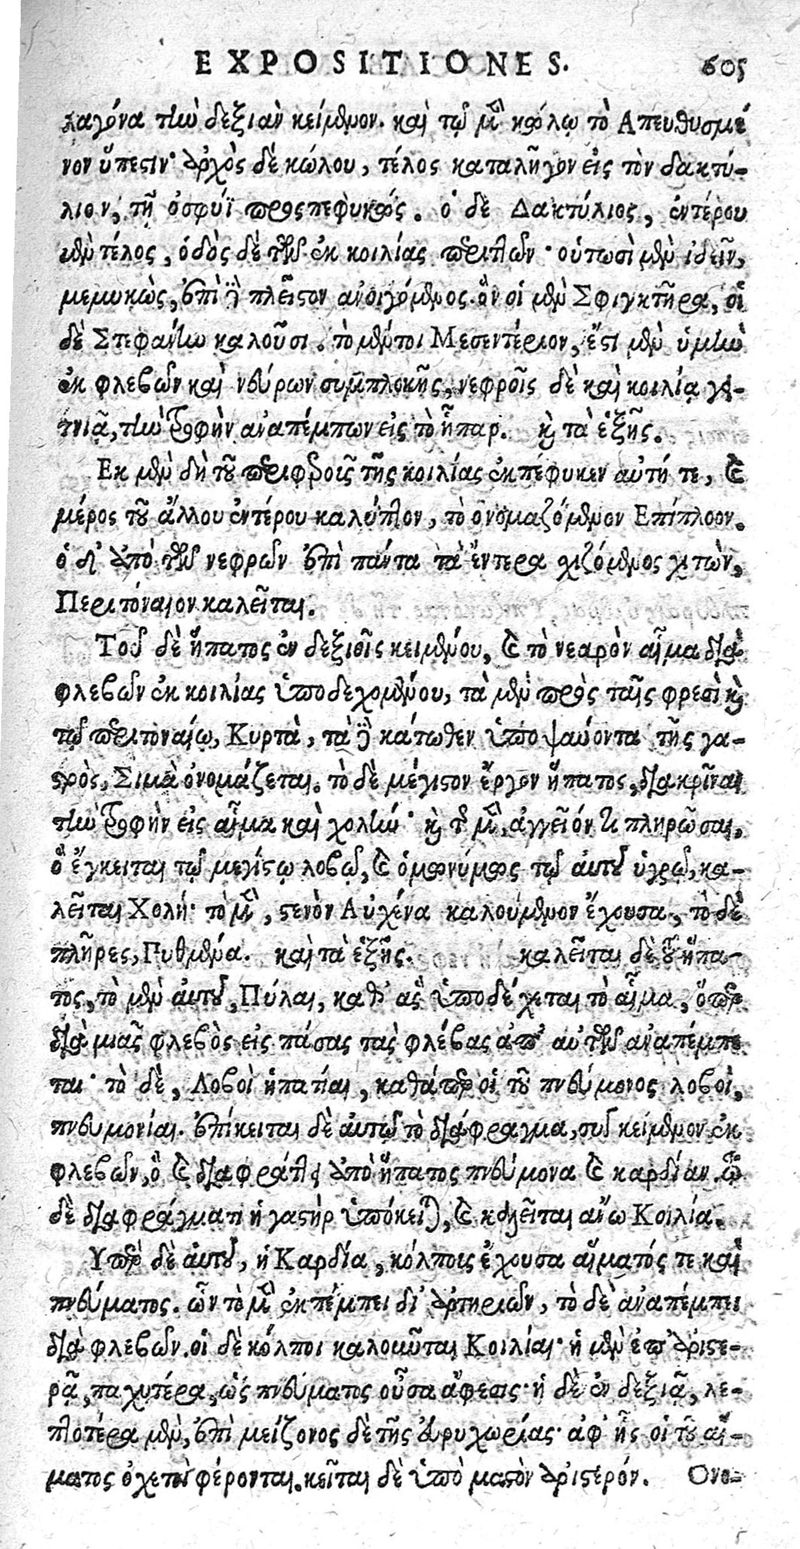 EXPOSITIONES. 605
λαγόνα τὴν δεξιὰν κείμενον. καὶ τῷ μὲν κώλῳ τὸ Απευθυσμέ
νον ὕπεστιν· ἀρχὸς δὲ κώλου, τέλος καταλῆγον εἰς τὸν δακτύ-
λιον, τῇ ὀσφύϊ προσπεφυκώς. ὁ δὲ Δακτύλιος, ἐντέρου
μὲν τέλος, ὁδὸς δὲ τῶν ἐκ κοιλίας περιττῶν· οὑτωσὶ μὲν ἰδεῖν,
μεμυκὼς, ἐπὶ δὲ πλεῖστον ἀνοιγόμενος. ὃν οἱ μὲν Σφιγκτῆρα, οἱ
δὲ Στεφάνην καλοῦσι. τὸ μέντοι Μεσεντέριον, ἔστι μὲν ὑμὴν
ἐκ φλεβῶν καὶ νεύρων συμπλοκῆς, νεφροῖς δὲ καὶ κοιλίᾳ γει-
τνιᾷ, τὴν τροφὴν ἀναπέμπων εἰς τὸ ἧπαρ. καὶ τὰ ἑξῆς.
Εκ μὲν δὴ τοῦ περιφεροῦς τῆς κοιλίας ἐκπέφυκεν αὐτή τε, καὶ
μέρος τοῦ ἄλλου ἐντέρου καλύπτον, τὸ ὀνομαζόμενον Επίπλοον.
ὁ δ' ἀπὸ τῶν νεφρῶν ἐπὶ πάντα τὰ ἔντερα σχιζόμενος χιτὼν,
Περιτόναιον καλεῖται.
Τοῦ δὲ ἥπατος ἐν δεξιοῖς κειμένου, καὶ τὸ νεαρὸν αἷμα διὰ
φλεβῶν ἐκ κοιλίας ὑποδεχομένου, τὰ μὲν πρὸς ταῖς φρεσὶ καὶ
τῷ περιτοναίῳ, Κυρτὰ, τὰ δὲ κάτωθεν ὑποψαύοντα τῆς γα-
στρὸς, Σιμὰ ὀνομάζεται. τὸ δὲ μέγιστον ἔργον ἥπατος, διακρῖναι
τὴν τροφὴν εἰς αἷμα καὶ χολὴν· καὶ τὸ μὲν, ἀγγεῖόν τι πληρῶσαι,
ὃ ἔγκειται τῷ μεγίστῳ λοβῷ, καὶ ὁμωνύμως τῷ αὑτοῦ ὑγρῷ, κα-
λεῖται Χολή· τὸ μὲν, στενὸν Αὐχένα καλούμενον ἔχουσα, τὸ δὲ
πλῆρες, Πυθμένα. καὶ τὰ ἑξῆς. καλεῖται δὲ τοῦ ἥπα-
τος, τὸ μὲν αὐτοῦ, Πύλαι, καθ' ἃς ὑποδέχεται τὸ αἷμα, ὅπερ
διὰ μιᾶς φλεβὸς εἰς πάσας τὰς φλέβας ἀπ' αὐτῶν ἀναπέμπε
ται· τὸ δὲ, Λοβοὶ ἡπατίαι, καθάπερ οἱ τοῦ πνεύμονος λοβοὶ,
πνευμονίαι. ἐπίκειται δὲ αὐτῷ τὸ διάφραγμα, συγκείμενον ἐκ
φλεβῶν, ὃ καὶ διαφράττει ἀπὸ ἥπατος πνεύμονα καὶ καρδίαν. τῷ
δὲ διαφράγματι ἡ γαστὴρ ὑπόκειται, καὶ καλεῖται ἄνω Κοιλία.
Υπὲρ δὲ αὐτοῦ, ἡ Καρδία, κόλποις ἔχουσα αἵματός τε καὶ
πνεύματος. ὧν τὸ μὲν ἐκπέμπει δι' ἀρτηριῶν, τὸ δὲ ἀναπέμπει
διὰ φλεβῶν. οἱ δὲ κόλποι καλοῦνται Κοιλίαι· ἡ μὲν ἐπ' ἀριστε-
ρᾷ, παχυτέρα, ὡς πνεύματος οὖσα ἄφεσις· ἡ δὲ ἐν δεξιᾷ, λε-
πτοτέρα μὲν, ἐπὶ μείζονος δὲ τῆς εὐρυχωρίας· ἀφ' ἧς οἱ τοῦ αἵ-
ματος ὀχετοὶ φέρονται. κεῖται δὲ ὑπὸ μαστὸν ἀριστερόν. Ονο-